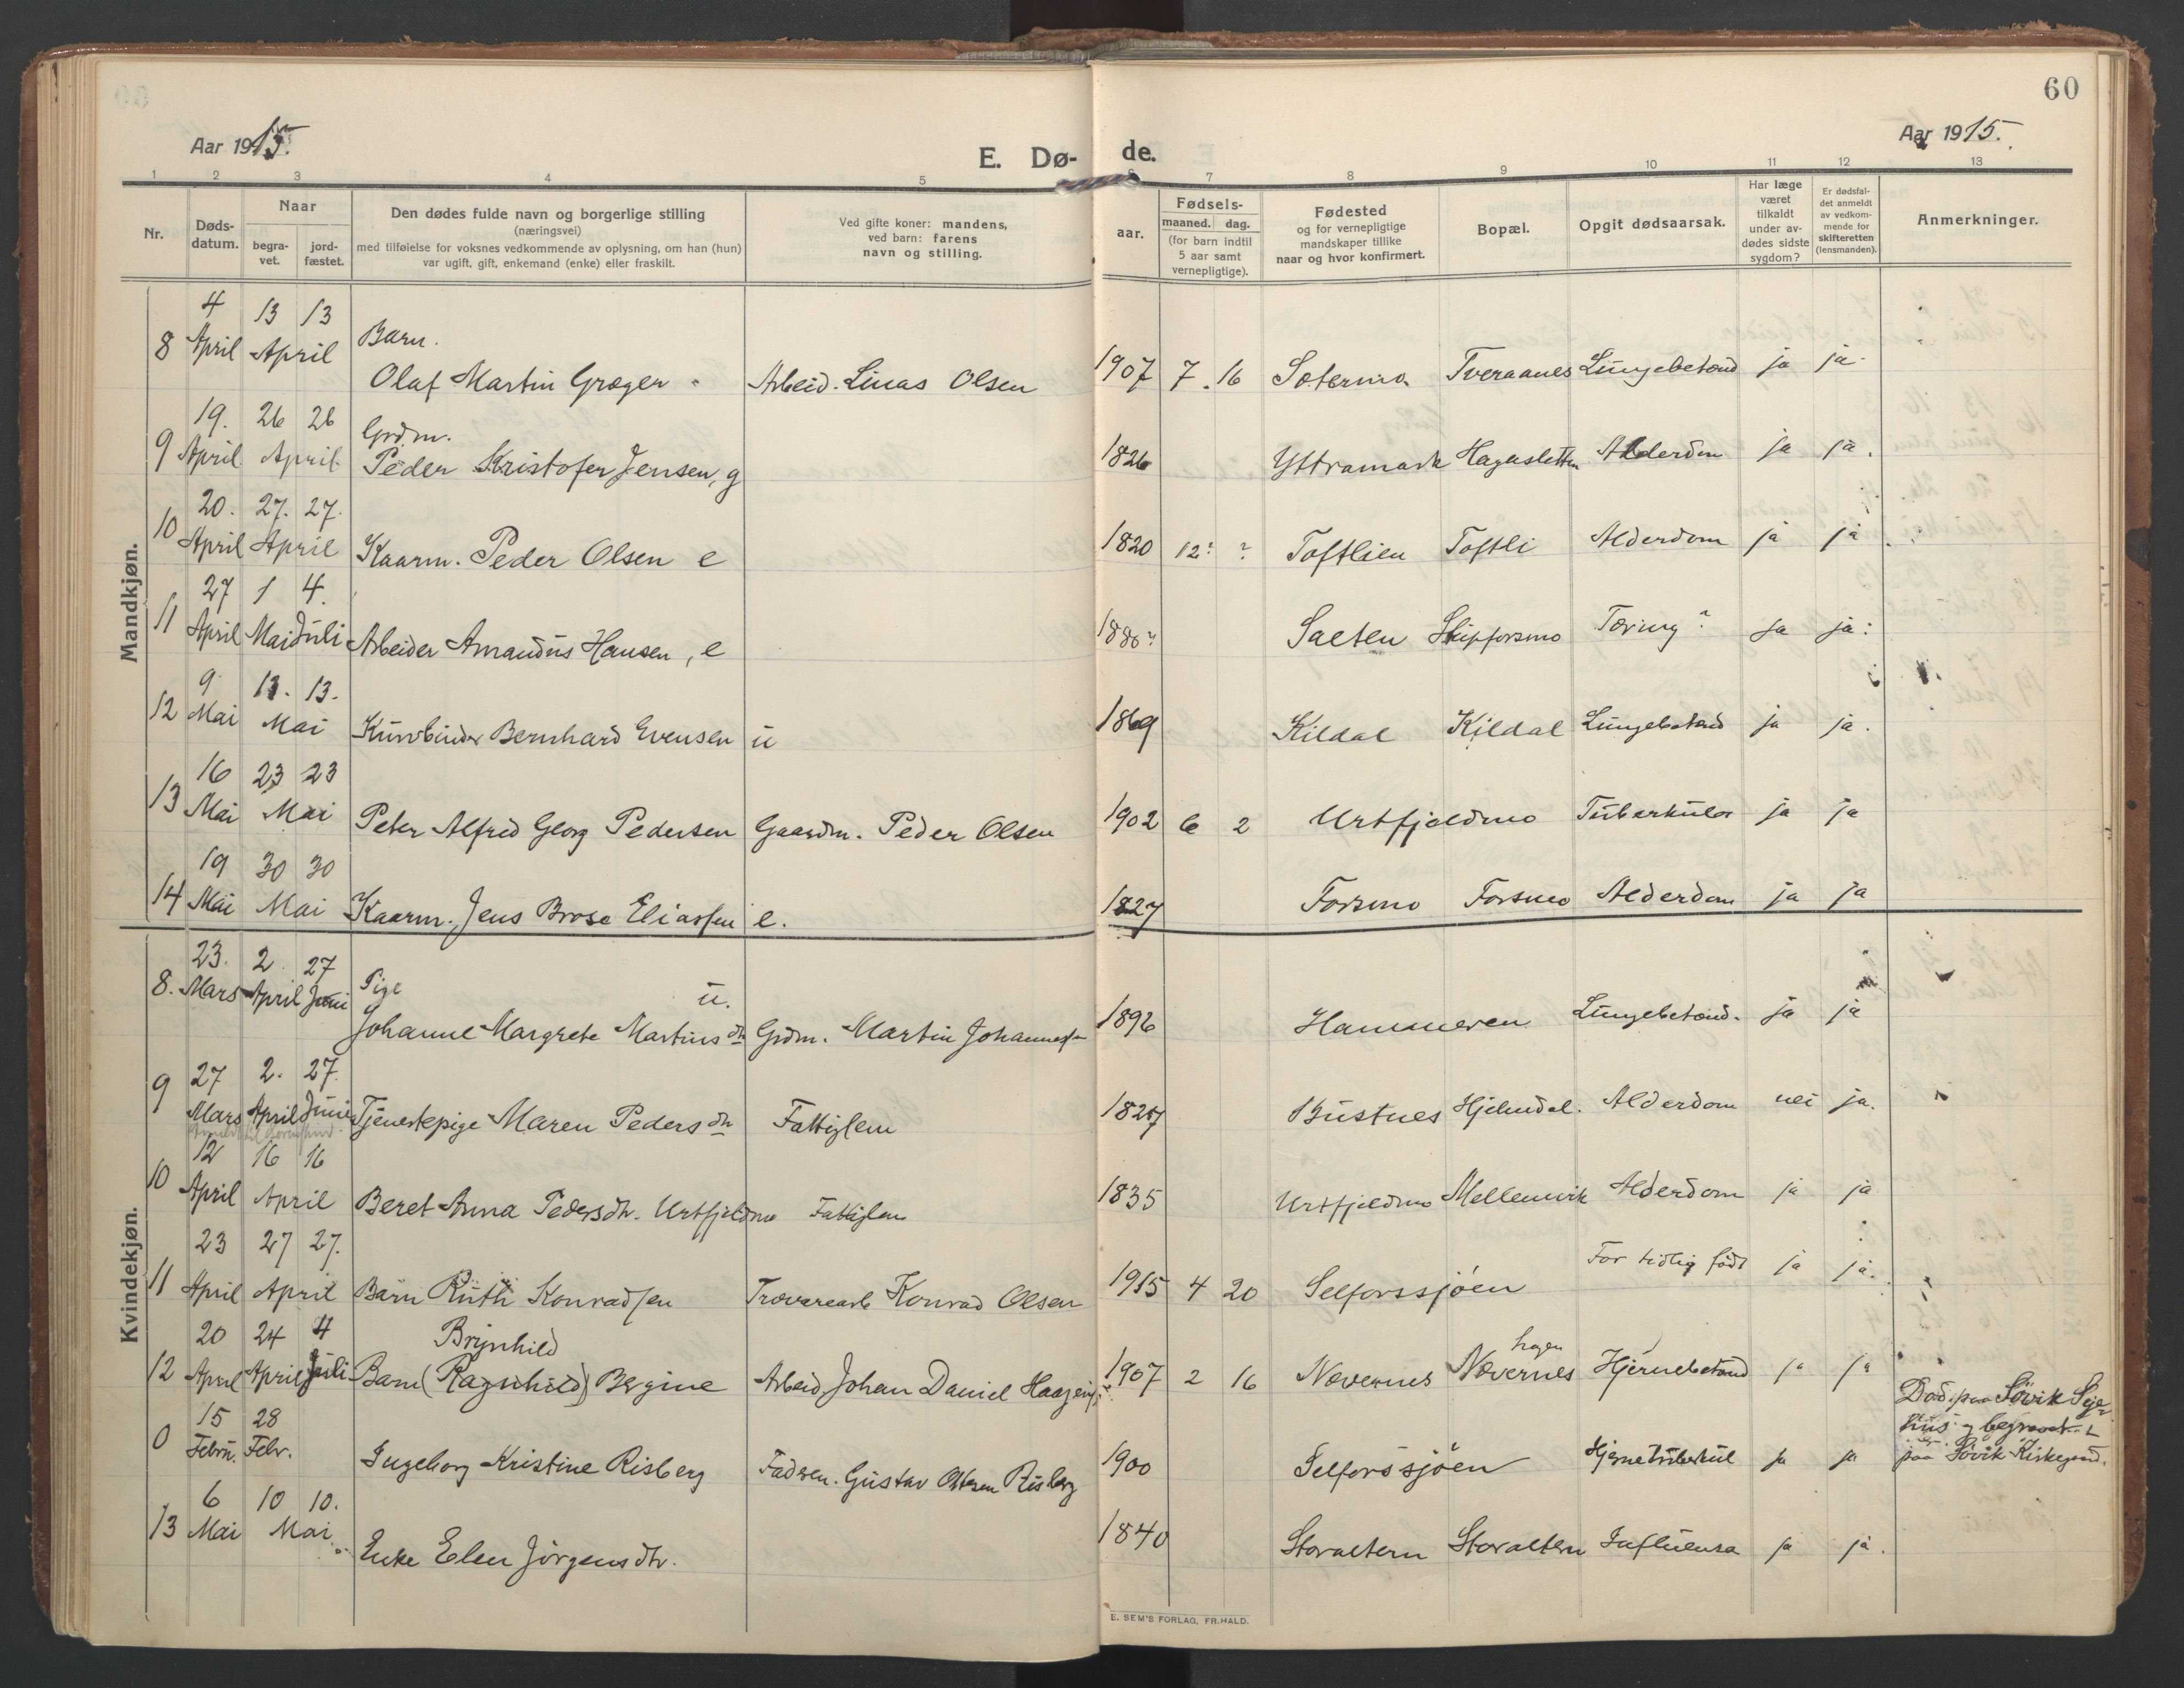 60
Aar 1915.
Aar 1915.
E. Dø-
de.
1 2 3 4 5
6 7 8 9 10 11 12 13
Nr.
Døds-
datum.
Naar
begra-
vet.
jord-
fæstet.
Den dødes fulde navn og borgerlige stilling
(næringsvei)
med tilføielse for voksnes vedkommende av oplysning, om han (hun)
var ugift, gift, enkemand (enke) eller fraskilt.
Ved gifte koner: mandens,
ved barn: farens
navn og stilling.
Fødsels-
aar.
maaned.
dag.
(for barn indtil
5 aar samt
vernepligtige).
Fødested
og for vernepligtige
mandskaper tillike
naar og hvor konfirmert.
Bopæl.
Opgit dødsaarsak.
Har læge
været
tilkaldt
under av-
dødes sidste
sygdom?
Er dødsfal-
det anmeldt
av vedkom-
mende for
skifteretten
(lensmanden).
Anmerkninger.
Mandkjøn.
4 13 13
8 April April Barn.
Olaf Martin Græger Arbeid. Linas Olsen 1907 7. 16 Sæterma Tveraanes Lungebetænd ja ja.
19. 26 26 Grdm.
9 April April Peder Kristofer Jensen, g 1826 Yttramark Hagasletten Alderdm ja ja.
20. 27. 27.
10 April April Kaarm. Peder Olsen e 1820 12? ? Toftlien Toftli Alderdom ja ja
27 1 4.
11 April Mai Juli Arbeider Amandus Hansen, e 188? Salten Skipforsmo Tæring? ja ja.
9 13. 13.
12 Mai Mai Kurvbinder Bernhard Evensen u 1869 Kildal Kildal Lungebetænd ja ja.
16 23 23
13 Mai Mai Peter Alfred Georg Pedersen Gaardm. Peder Olsen 1902 6 2 Urtfjeldmo Tuberkulos ja ja
19 30 30
14 Mai Mai Kaarm. Jens Brose Eliassen e. 1827 Forsmo Forsmo Alderdom ja ja
Kvindekjøn.
23. 2 27
8. Mars April Juni Pige u.
Johanne Margrete Martinsdtr Grdm. Martin Johannes 1896 Hammeren Lungebetænd. ja ja
27 2. 27.
9 Mars April Juni Tjenestepige Maren Pedersdtr Fattiglem 1827 Bustnes Hjelmdal. Alderdom nei ja.
12 16 16
10 April April Beret Anna Pedersdtr. Urtfjeldmo Fattiglem 1835 Urtfjeldmo Mellemvik Alderdom ja ja
23 27 27.
11 April April Barn Ruth Konradsen Trævarearb Konrad Olsen 1915 4 20 Selforssjøen For tidlig født ja ja.
20 24 4 Brynhild hagen
12 April April Juli Barn (Ragnhild) Bergine Arbeid Johan Daniel 1907 2 16 Nævernes Nævernes Hjernebetænd ja ja
15 28
0 Febru. Febr. Ingeborg Kristine Risberg Faderen. Gustav Risberg 1900 Selforssjøen Hjernetuberkul ja ja
Død paa Søvik Syge-
hus og begravet
paa Søvik Kirkegaard.
6 10 10.
13 Mai Mai Enke Elen Jørgensdtr. 1840 Storaltern Storaltern Influensa ja ja.
E. SEM'S FORLAG, FR.HALD.